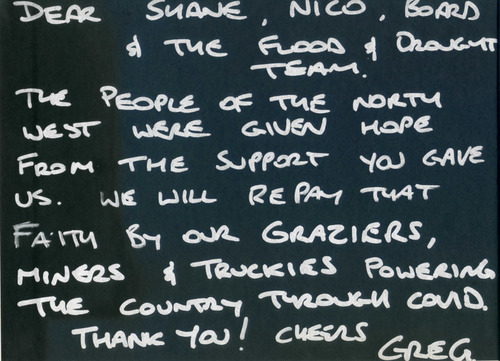 DEAR SHANE, NICO, BOARD
& THE FLOOD & DROUGHT
TEAM.
THE PEOPLE OF THE NORTH
WEST WERE GIVEN HOPE
FROM THE SUPPORT YOU GAVE
US. WE WILL REPAY THAT
FAITH BY OUR GRAZIERS,
MINERS & TRUCKIES POWERING
THE COUNTRY THROUGH COVID.
THANK YOU! CHEERS
GREG